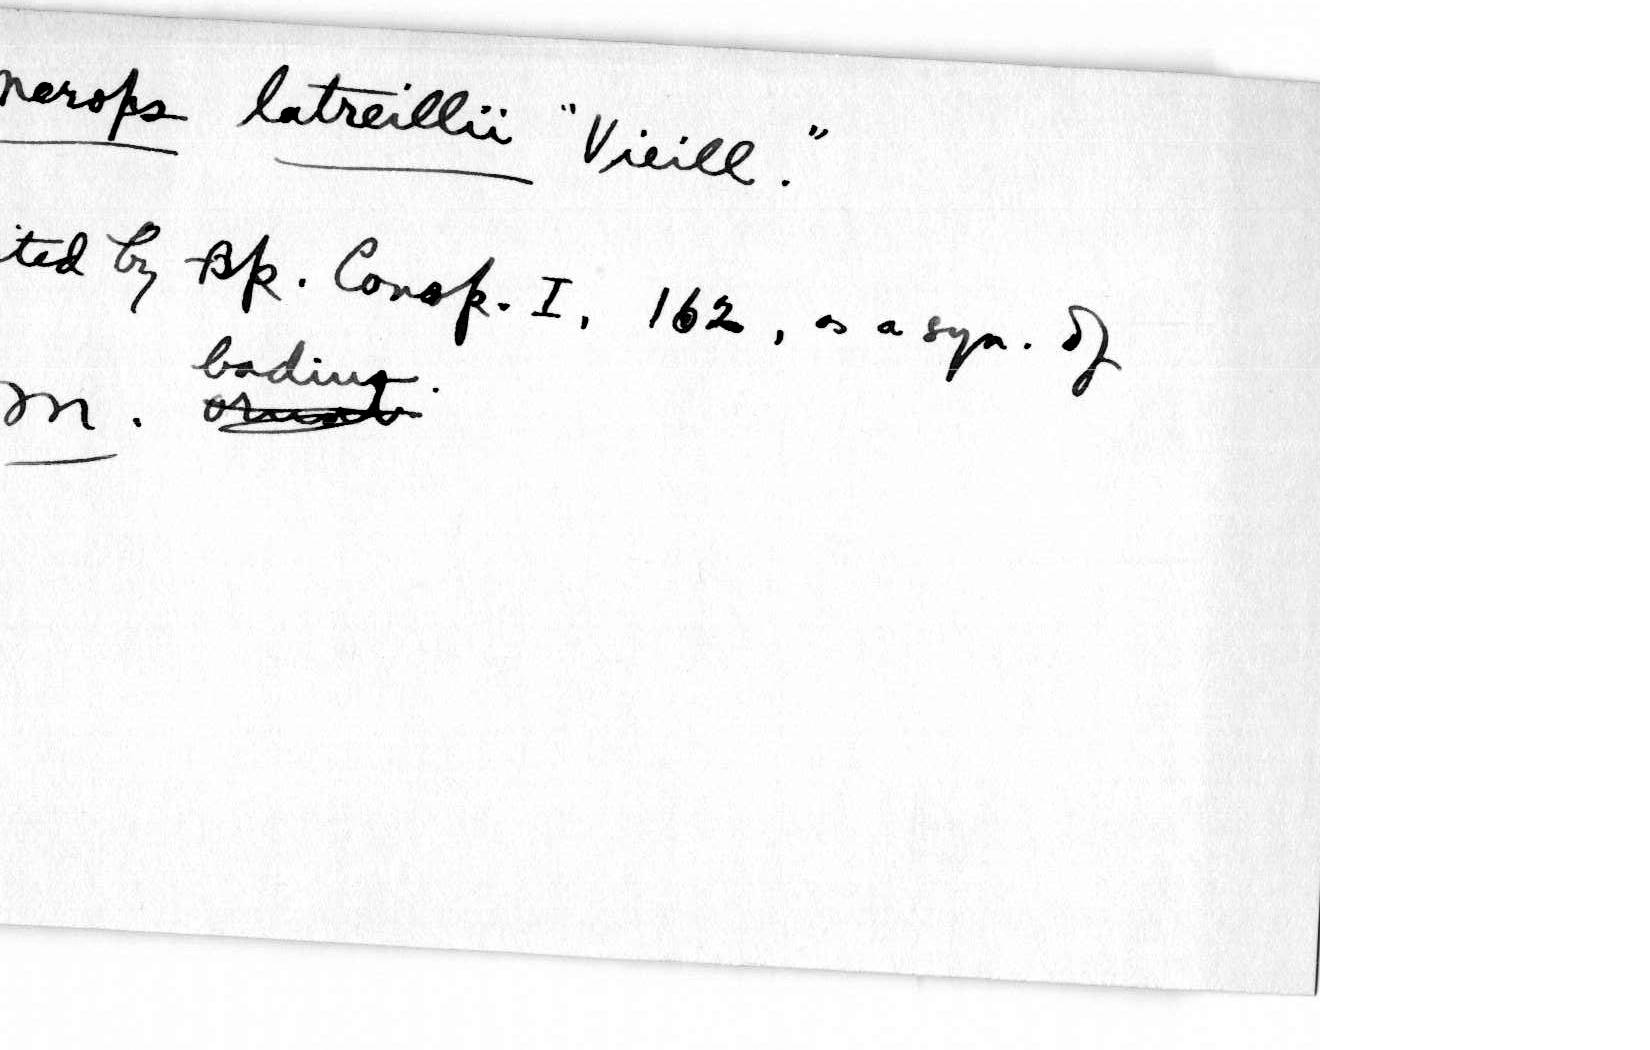 merops latreillii "Vieill."
ited by Bp. Consp. I, 162, as a syn. of
badius.
M.